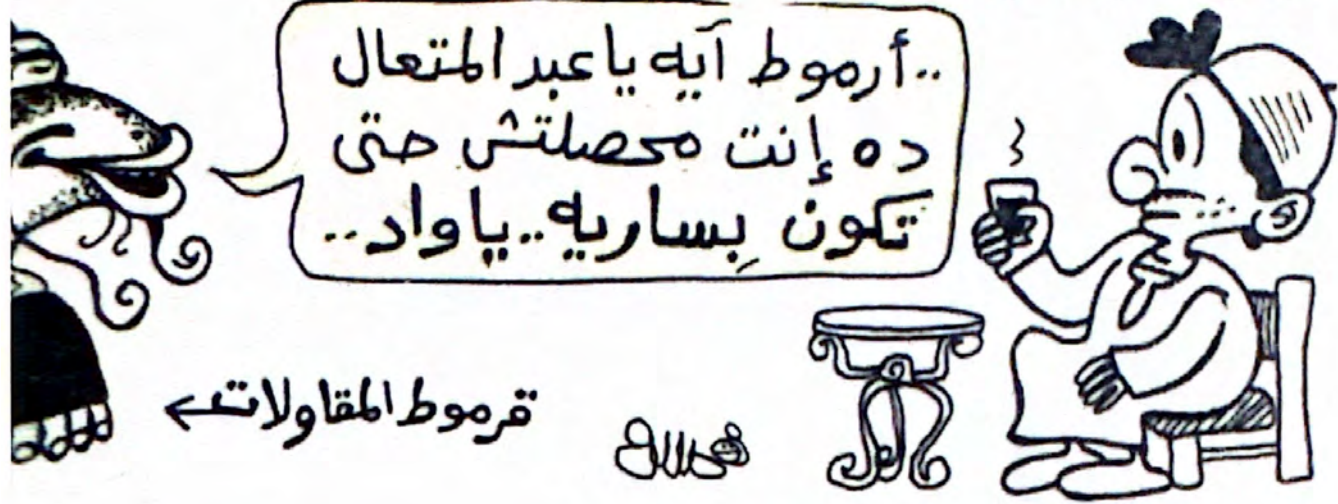 ..أرموط آيه يا عبد المتعال
ده إنت محصلتش حتى
تكون بسارية.. ياواد..
قرموط المقاولات